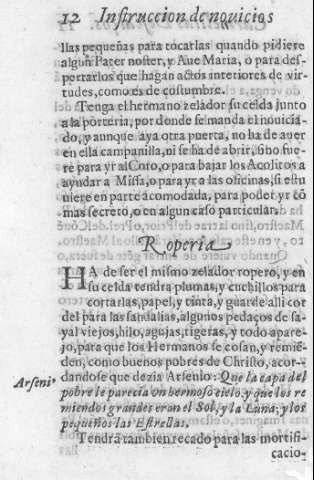 12 Instruccion de nouicios
llas pequeñas para tocarlas quando pidiere
algun Pater noster, y Aue Maria, o para des-
pertarlos que hagan actos interiores de vir-
tudes, como es de costumbre.
Tenga el hermano zelador su celda junto
a la porteria, por donde se manda el nouicia-
do, y aunque aya otra puerta, no ha de auer
en ella campanilla, ni se ha de abrir, sino fue-
re para yr al Coro, o para bajar los Acolitos a
ayudar a Missa, o para yr a las oficinas, si estu
uiere en parte acomodada, para poder yr cõ
mas secreto, o en algun caso particular.
Roperia
HA de ser el mismo zelador ropero, y en
su celda tendra plumas, y cuchillos para
cortarlas, papel, y tinta, y guarde alli cor
del para las sandalias, algunos pedaços de sa-
yal viejos, hilo, agujas, tigeras, y todo apare-
jo, para que los Hermanos se cosan, y remiē-
den, como buenos pobres de Christo, acor-
Arseni⁹
dandose que dezia Arsenio: Que la capa del
pobre le parecia vn hermoso cielo, y que los re
miendos grandes eran el Sol, y la Luna; y los
pequeños las Estrellas.
Tendrà tambien recado para las mortifi-
cacio-